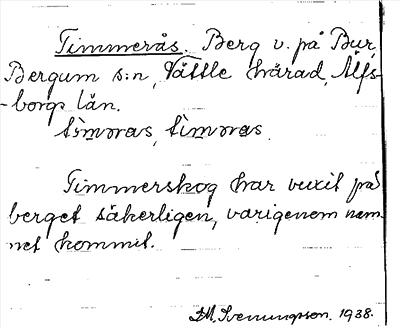 Timmerås. Berg v. på Bur,
Bergum s:n, Vättle härad, Älfs-
-borgs län.
tìmoras, tìmoras.
Timmerskog har vuxit på
berget säkerligen, varigenom nam-
net kommit.
M. Svenungson. 1938.